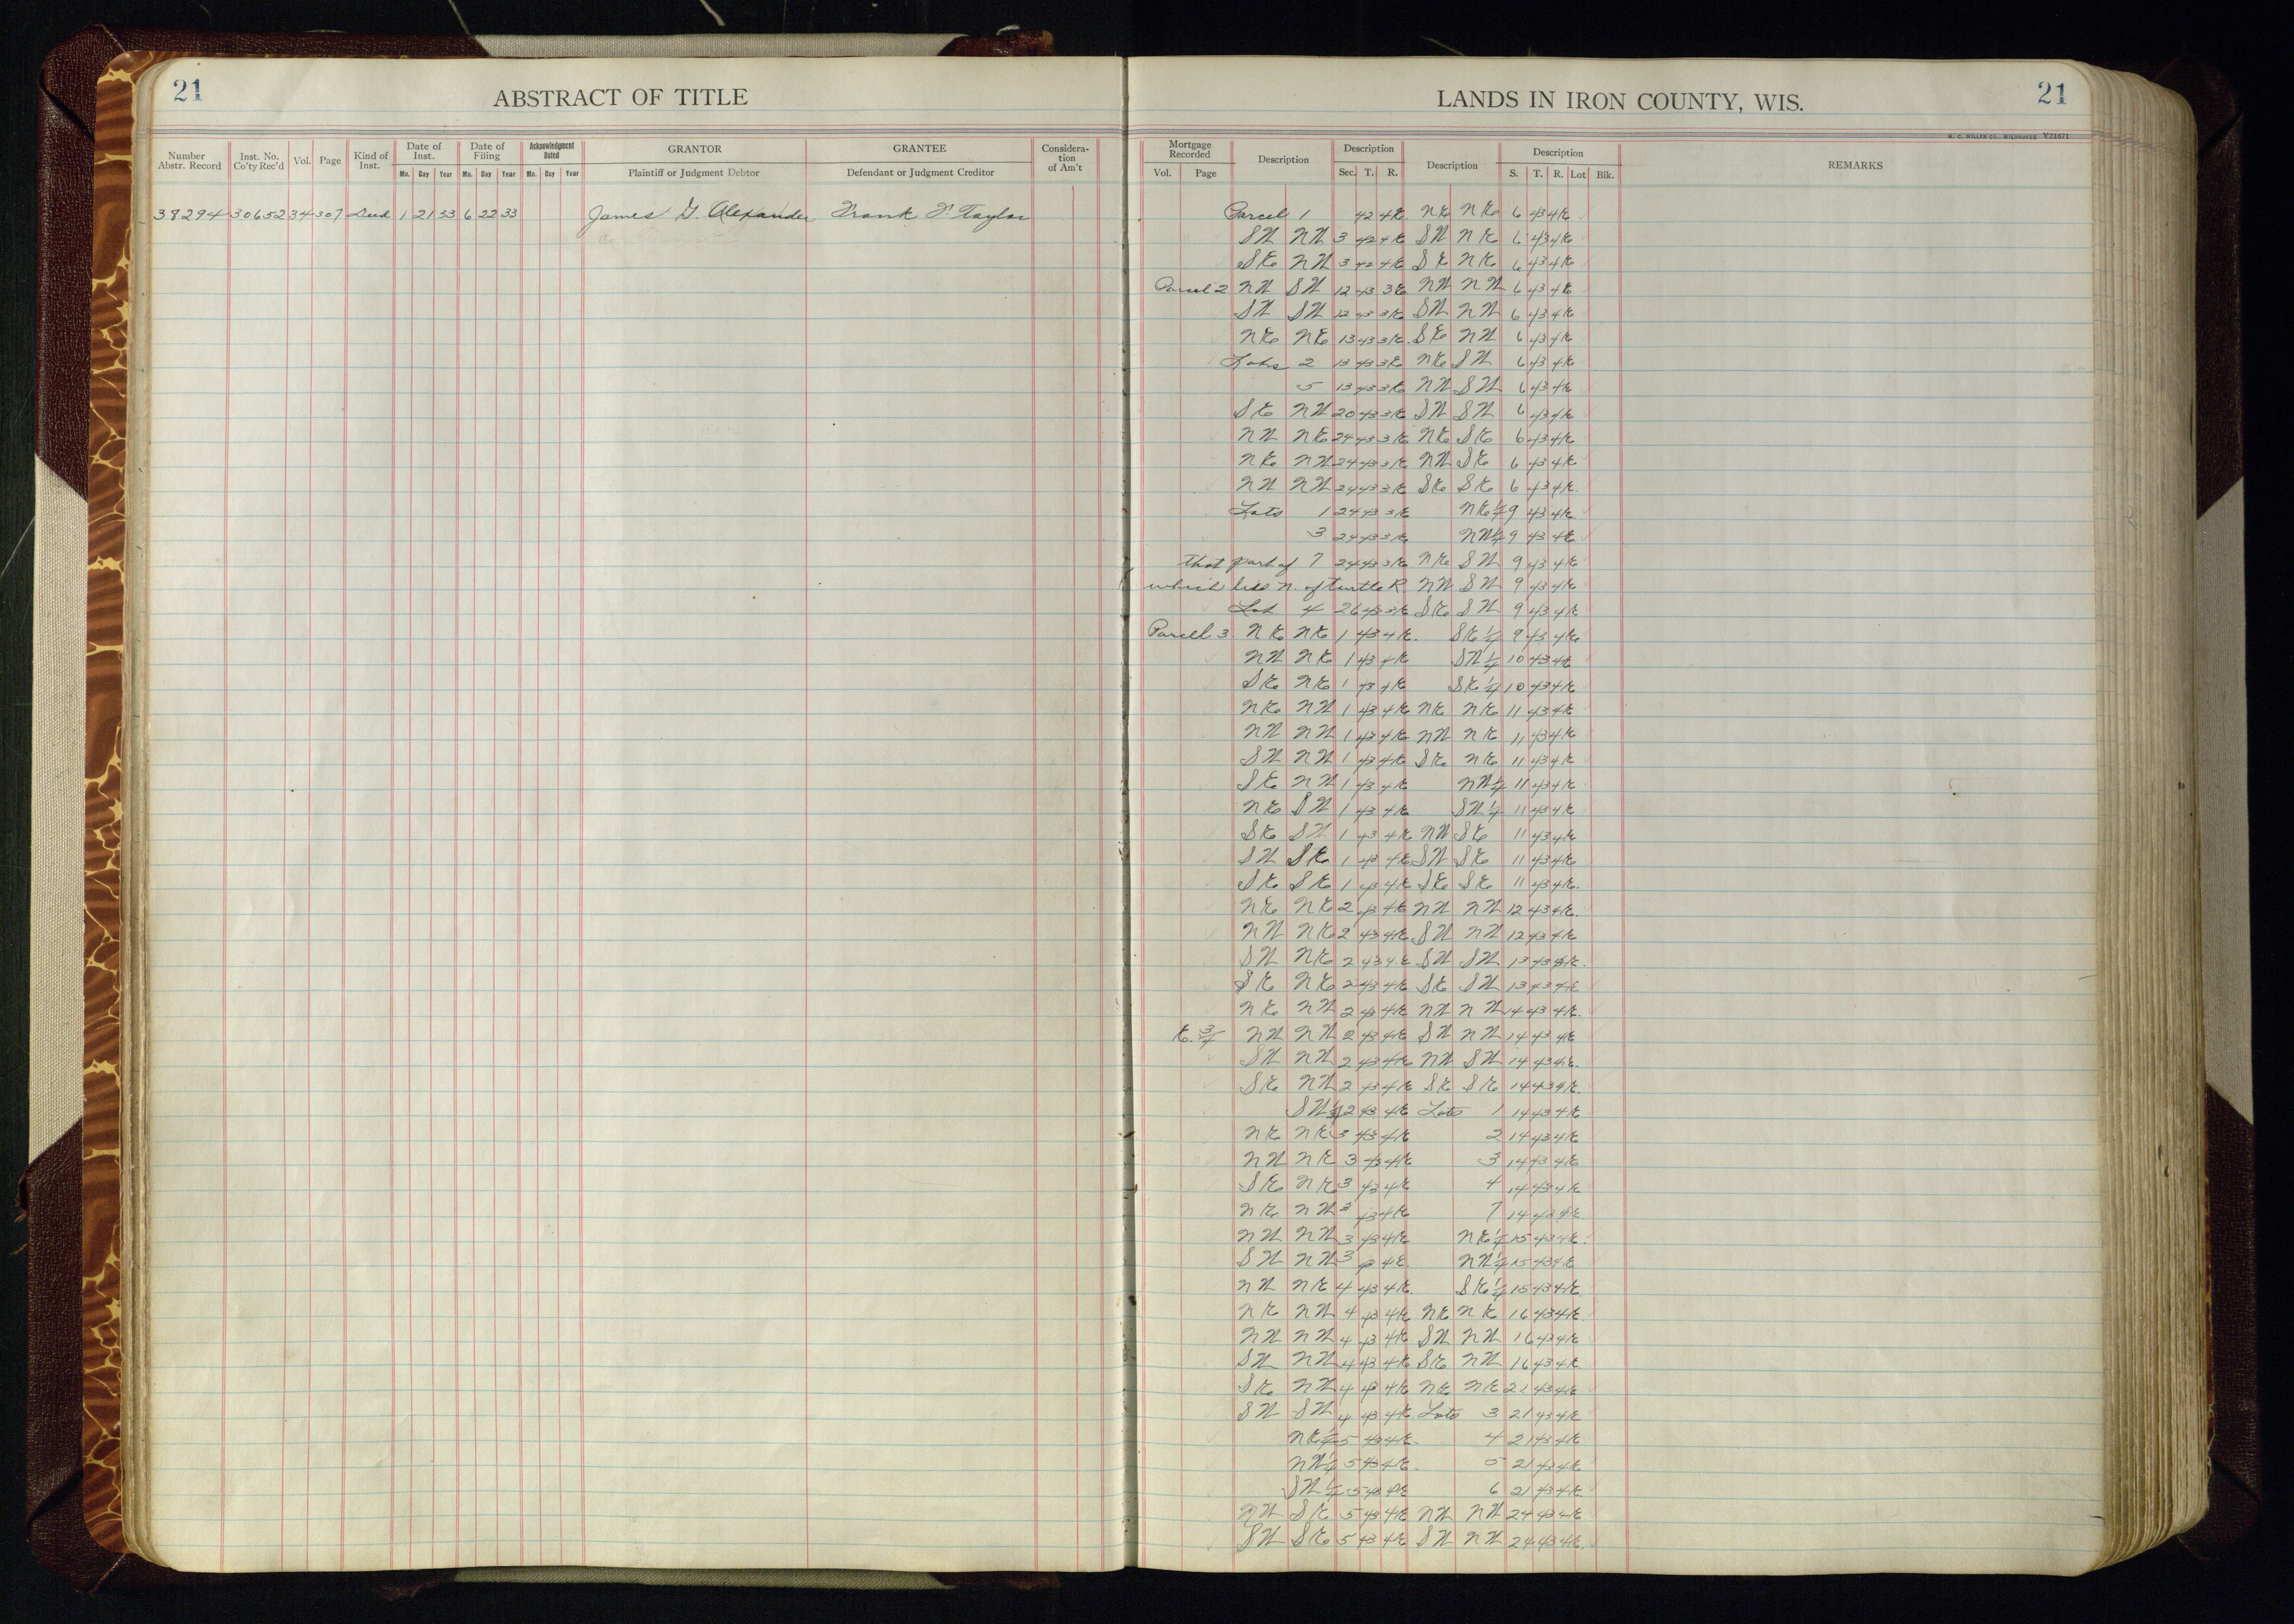 21
ABSTRACT OF TITLE
Number Abstr. Record
Inst. No. Co'ty Rec'd
Vol.
Page
Kind of Inst.
Date of Inst.
Mo. Day Year
Date of Filing
Mo. Day Year
Acknowledgment Dated
Mo. Day Year
GRANTOR
Plaintiff or Judgment Debtor
GRANTEE
Defendant or Judgment Creditor
Considera- tion of Am't
38294 30652 34 307 Deed 1 21 33 6 22 33 James G. Alexander Frank F. Taylor
LANDS IN IRON COUNTY, WIS.
21
H. C. MILLER CO., MILWAUKEE Y21671
Mortgage Recorded
Vol. Page
Description
Description
Sec. T. R.
Description
Description
S. T. R. Lot Blk.
REMARKS
Parcel 1 42 4E NE NE 6 43 4E
SW NW 3 42 4E SW NE 6 43 4E
SE NW 3 42 4E SE NE 6 43 4E
Parcel 2 NW SW 12 43 3E NW NW 6 43 4E
SW SW 12 43 3E SW NW 6 43 4E
NE NE 13 43 3E SE NW 6 43 4E
Lots 2 13 43 3E NE SW 6 43 4E
5 13 43 3E NW SW 6 43 4E
SE NW 20 43 3E SW SW 6 43 4E
NW NE 24 43 3E NE SE 6 43 4E
NE NW 24 43 3E NW SE 6 43 4E
NW NW 24 43 3E SE SE 6 43 4E
Lots 1 24 43 3E NE 1/4 9 43 4E
3 24 43 3E NW 1/4 9 43 4E
That part of 7 24 43 3E NE SW 9 43 4E
which lies N. of Turtle R. NW SW 9 43 4E
Lot 4 26 43 3E SE SW 9 43 4E
Parcel 3 NE NE 1 43 4E SE 1/4 9 43 4E
NW NE 1 43 4E SW 1/4 10 43 4E
SE NE 1 43 4E SE 1/4 10 43 4E
NE NW 1 43 4E NE NE 11 43 4E
NW NW 1 43 4E NW NE 11 43 4E
SW NW 1 43 4E SE NE 11 43 4E
SE NW 1 43 4E NW 1/4 11 43 4E
NE SW 1 43 4E SW 1/4 11 43 4E
SE SW 1 43 4E NW SE 11 43 4E
SW SE 1 43 4E SW SE 11 43 4E
SE SE 1 43 4E SE SE 11 43 4E
NE NE 2 43 4E NW NW 12 43 4E
NW NE 2 43 4E SW NW 12 43 4E
SW NE 2 43 4E SW SW 13 43 4E
SE NE 2 43 4E SE SW 13 43 4E
NE NW 2 43 4E NW NW 14 43 4E
E. 3/4 NW NW 2 43 4E SW NW 14 43 4E
SW NW 2 43 4E NW SW 14 43 4E
SE NW 2 43 4E SE SE 14 43 4E
SW 1/4 2 43 4E Lots 1 14 43 4E
NE NE 3 43 4E 2 14 43 4E
NW NE 3 43 4E 3 14 43 4E
SE NE 3 43 4E 4 14 43 4E
NE NW 3 43 4E 7 14 43 4E
NW NW 3 43 4E NE 1/4 15 43 4E
SW NW 3 43 4E NW 1/4 15 43 4E
NW NE 4 43 4E SE 1/4 15 43 4E
NE NW 4 43 4E NE NE 16 43 4E
NW NW 4 43 4E SW NW 16 43 4E
SW NW 4 43 4E SE NW 16 43 4E
SE NW 4 43 4E NE NE 21 43 4E
SW SW 4 43 4E Lots 3 21 43 4E
NE 1/4 5 43 4E 4 21 43 4E
NW 1/4 5 43 4E 5 21 43 4E
SW 1/4 5 43 4E 6 21 43 4E
NW SE 5 43 4E NW NW 24 43 4E
SW SE 5 43 4E SW NW 24 43 4E